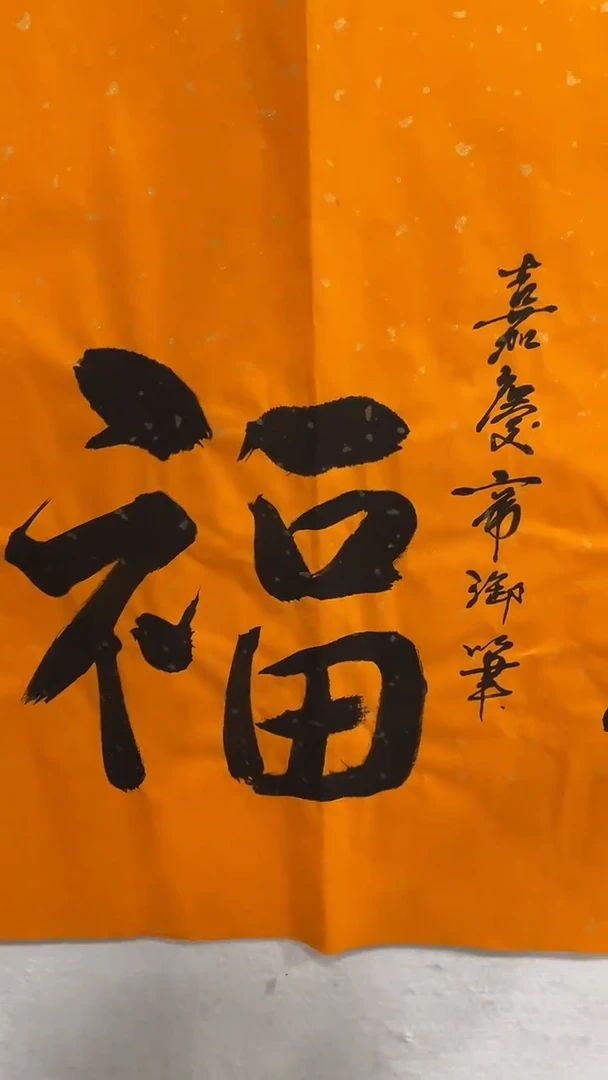 嘉慶帝御筆
福